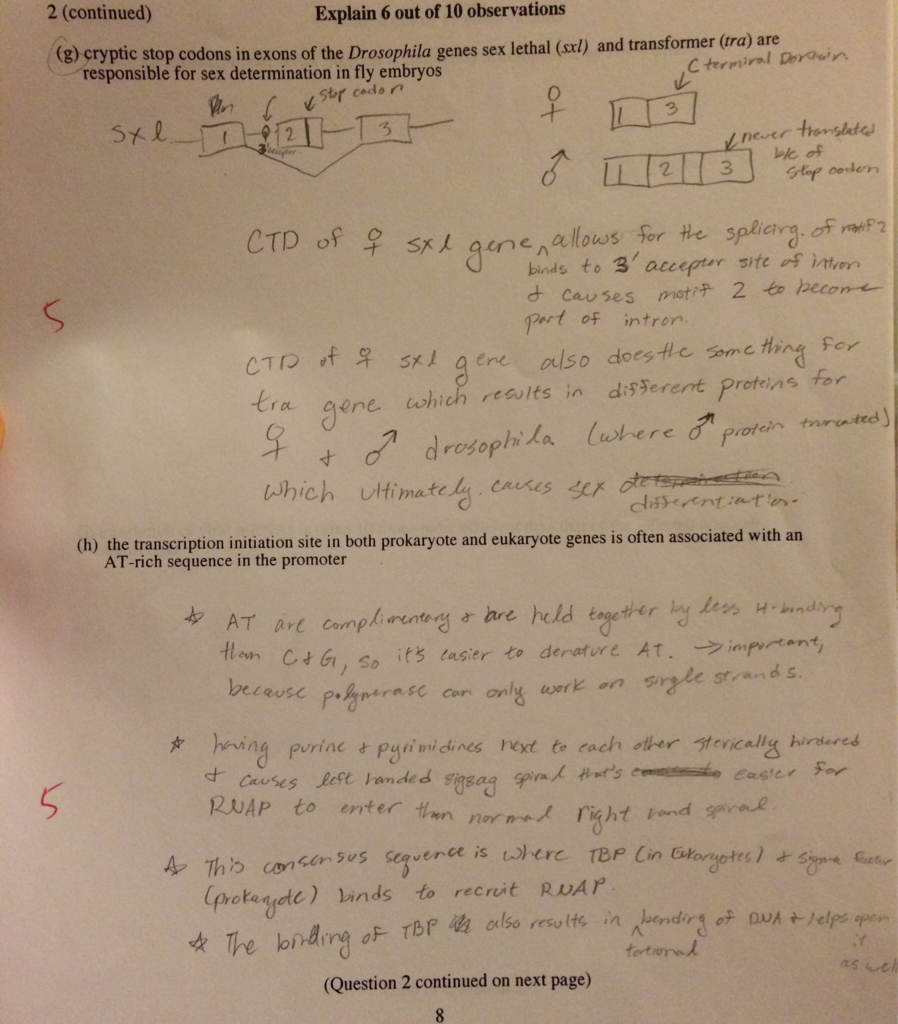 2 (continued) Explain 6 out of 10 observations
(g) cryptic stop codons in exons of the Drosophila genes sex lethal (sxl) and transformer (tra) are
responsible for sex determination in fly embryos
C terminal Domain
stop codon
♀ 1 3
sxl 1 2 3
3' acceptor
never translated
b/c of
stop codon
♂ 1 2 3
CTD of ♀ sxl gene allows for the splicing of motif 2
binds to 3' acceptor site of intron
& causes motif 2 to become
part of intron.
5
CTD of ♀ sxl gene also does the something for
tra gene which results in different proteins for
♀ + ♂ drosophila (where ♂ protein truncated)
which ultimately causes sex determination
differentiation.
(h) the transcription initiation site in both prokaryote and eukaryote genes is often associated with an
AT-rich sequence in the promoter
☆ AT are complimentary & are held together by less H-bonding
than C & G, so it's easier to denature AT. → important,
because polymerase can only work on single strands.
☆ having purine & pyrimidines next to each other sterically hindered
& causes left handed zigzag spiral that's easier for
RNAP to enter than normal right hand spiral.
5
☆ This consensus sequence is where TBP (in Eukaryotes) & sigma factor
(prokaryote) binds to recruit RNAP.
☆ The binding of TBP also results in bending of DNA & helps open
torsional
it
as well
(Question 2 continued on next page)
8